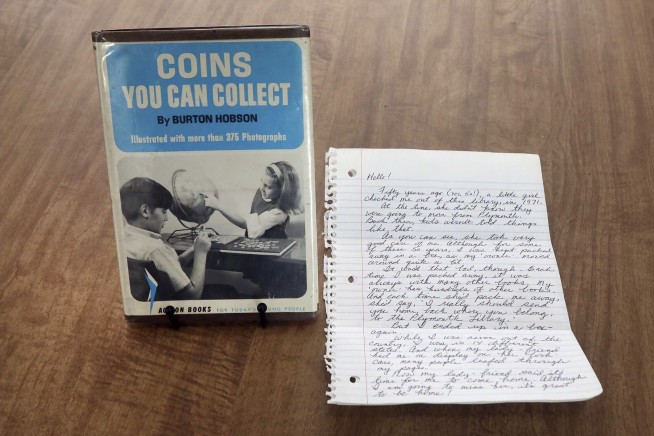 COINS
YOU CAN COLLECT
By BURTON HOBSON
Illustrated with more than 375 Photographs
ACTION BOOKS FOR TODAY'S YOUNG PEOPLE
Hello!
Fifty years ago (yes 50!), a little girl
checked me out of this library, in 1971.
At the time, she didn't know they
were going to move from Plymouth.
Back then, kids weren't told things
like that.
As you can see, she took very
good care of me. Although for some
of these 50 years, I was kept packed
away in a box, as my owner moved
around quite a bit.
So bad, though. Each
time I was packed away, it was
always with many other books. My
owner has hundreds of other books.
And each time she'd pack me away,
she'd say, I really should send
you home, back where you belong,
to the Plymouth Library.
But I ended up in a box-
again.
While I was never out of the
country, I was in different
states. And when my lady friend
had me on display in her book
case, many people leafed through
my pages.
Now my lady-friend said it's
time for me to come home. Although
I am going to miss her, it's great
to be home!